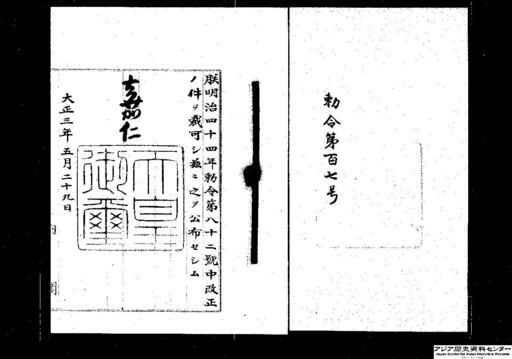 勅令第百七号
朕明治四十四年勅令第八十二號中改正
ノ件ヲ裁可シ茲ニ之ヲ公布セシム
嘉仁
天皇御璽
大正三年五月二十九日
内閣
アジア歴史資料センター
Japan Center for Asian Historical Records